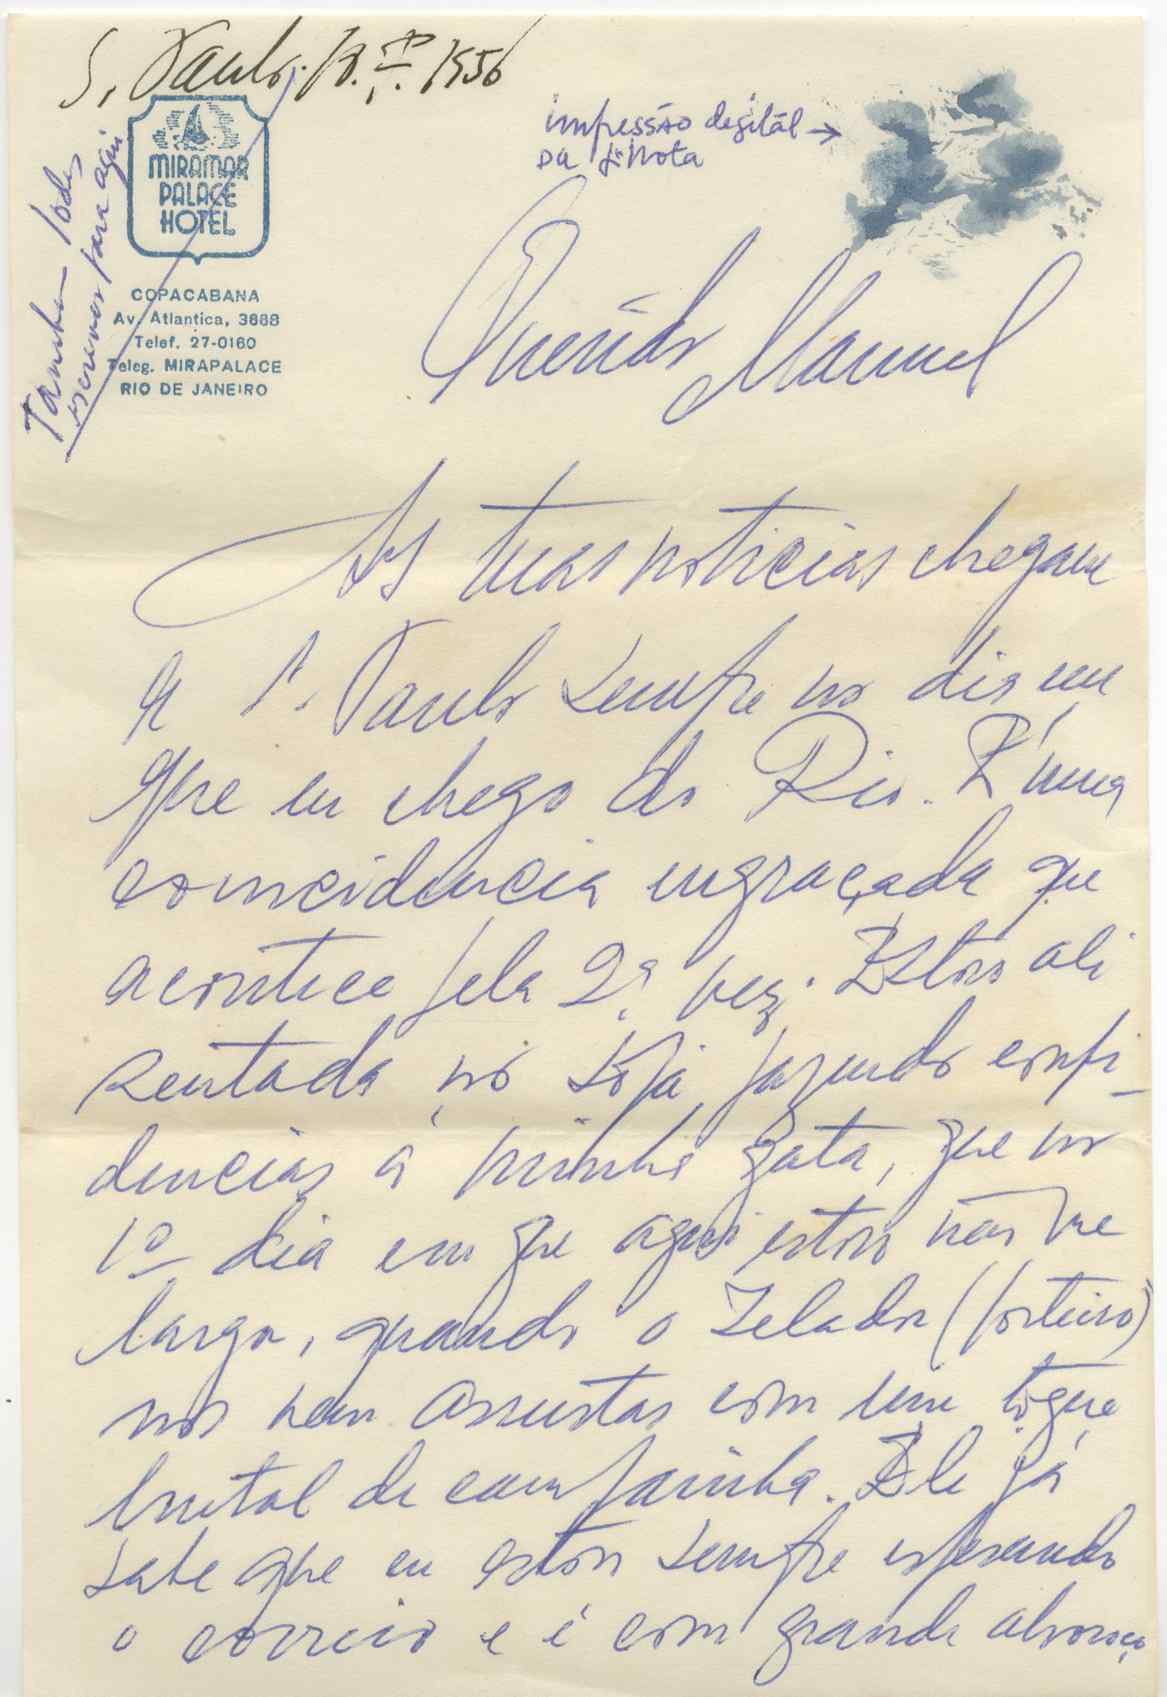 S. Paulo. 18. I. 1956
MIRAMAR
PALACE
HOTEL
COPACABANA
Av. Atlantica, 3668
Telef. 27-0160
Teleg. MIRAPALACE
RIO DE JANEIRO
escrevas para aqui
impressão degitál →
da
Querido Manuel
As tuas noticias chegam
a S. Paulo sempre no dia em
que eu chego do Rio. É uma
coincidencia engraçada que
acontece pela 2ª vez. Estou ali
sentada no sofá fazendo confi-
dencias á minha gata, que no
1º dia em que aqui estou não me
larga, quando o Zelador (porteiro)
nos vem assustar com um toque
brutal de campainha. Ele já
sabe que eu estou sempre esperando
o correio e é com grande alvoroço